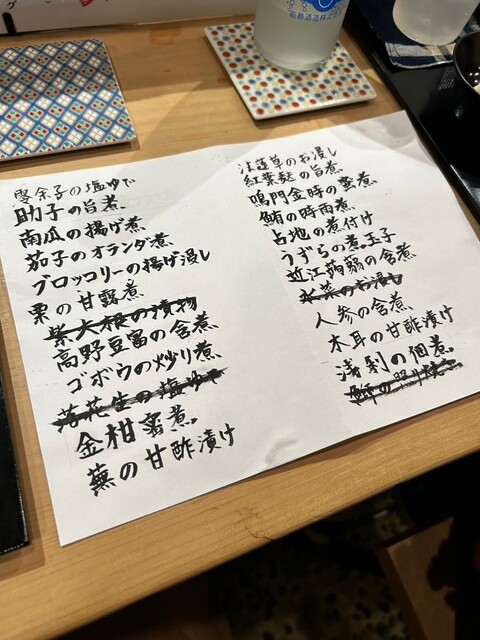 零余子の塩ゆで
助子の旨煮
南瓜の揚げ煮
茄子のオランダ煮
ブロッコリーの揚げ浸し
栗の甘露煮
紫大根の漬物
高野豆富の含煮
ゴボウの炒り煮
落花生の塩ゆで
金柑蜜煮。
蕪の甘酢漬け
法蓮草のお浸し
紅葉麩の旨煮
鳴門金時の蜜煮
鮪の時雨煮
占地の煮付け
うずらの煮玉子
近江蒟蒻の含煮
水菜のお浸し
人参の含煮
木耳の甘酢漬け
浅利の佃煮。
鰤の照り焼き